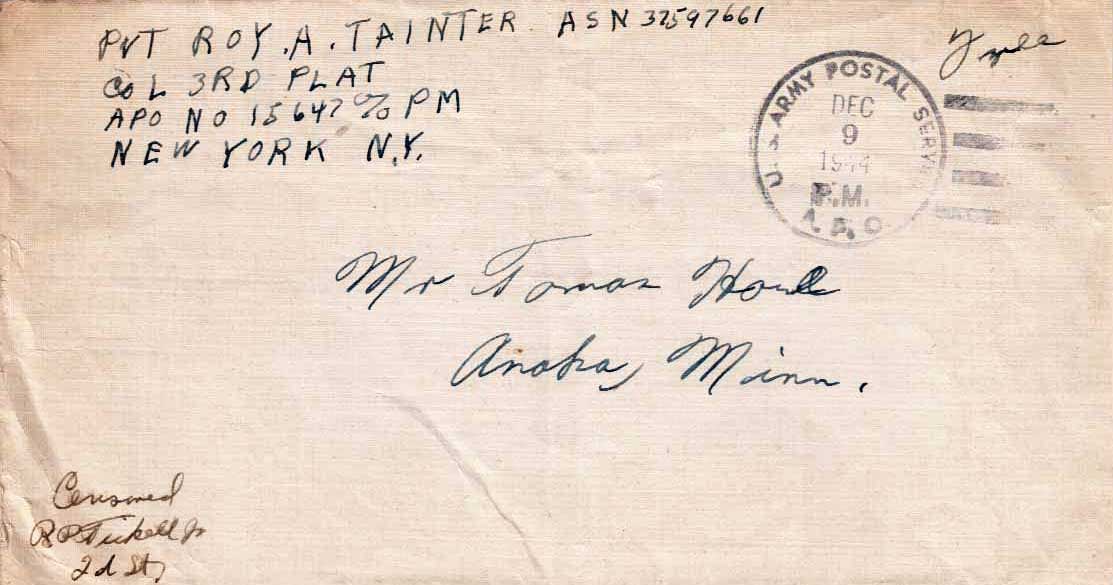 PVT ROY. A. TAINTER ASN 37597661
Co L 3RD PLAT
APO NO 15647 c/o PM
NEW YORK N.Y.
Free
U.S. ARMY POSTAL SERVICE
DEC
9
1944
P.M.
A.P.O.
Mr Tomas Houle
Anoka, Minn.
Censored
R P Tickell Jr
2d Lt,